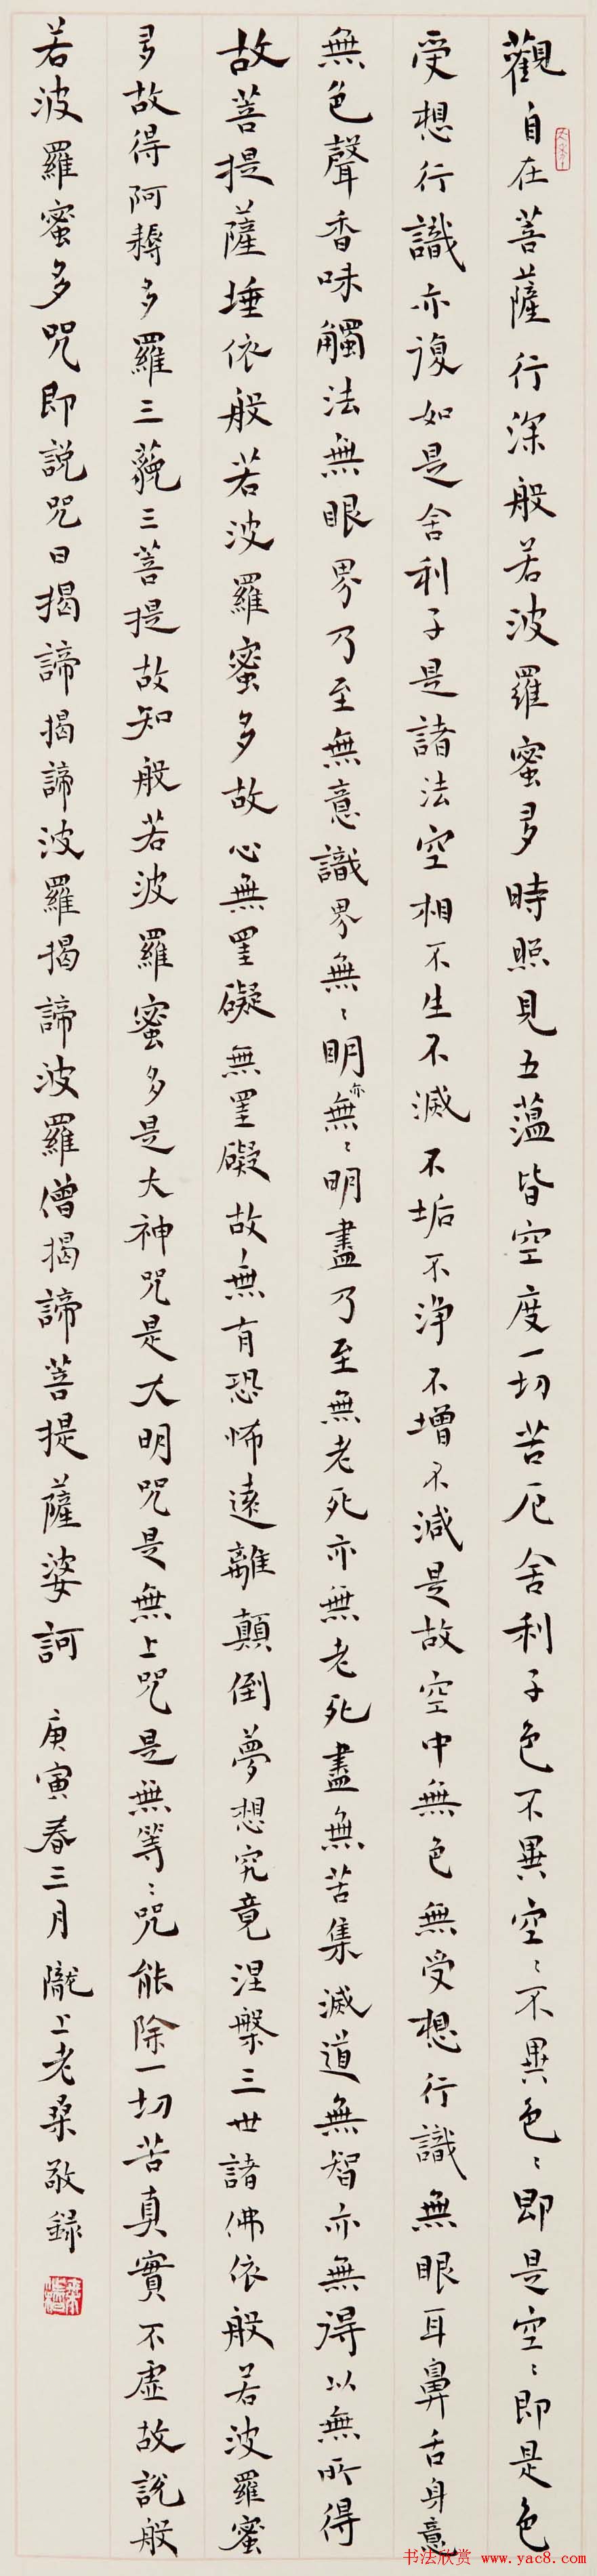 觀自在菩薩行深般若波羅蜜多時照見五蘊皆空度一切苦厄舍利子色不異空〻不異色〻即是空〻即是色
受想行識亦復如是舍利子是諸法空相不生不滅不垢不淨不增不減是故空中無色無受想行識無眼耳鼻舌身意
無色聲香味觸法無眼界乃至無意識界無〻明亦無〻明盡乃至無老死亦無老死盡無苦集滅道無智亦無得以無所得
故菩提薩埵依般若波羅蜜多故心無罣礙無罣礙故無有恐怖遠離顛倒夢想究竟涅槃三世諸佛依般若波羅蜜
多故得阿耨多羅三藐三菩提故知般若波羅蜜多是大神咒是大明咒是無上咒是無等〻咒能除一切苦真實不虛故說般
若波羅蜜多咒即說咒曰揭諦揭諦波羅揭諦波羅僧揭諦菩提薩婆訶 庚寅春三月隴上老桑敬錄
书法欣赏 www.yac8.com